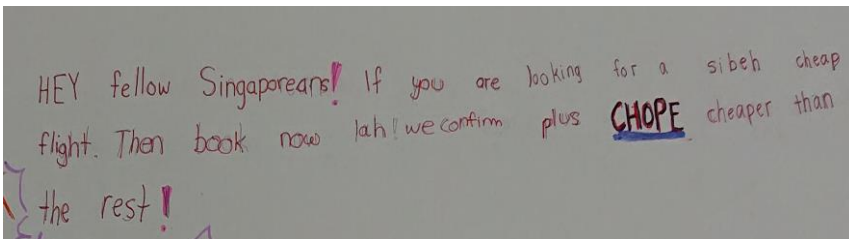 HEY fellow Singaporeans! If you are looking for a sibeh cheap
flight. Then book now lah! we confirm plus CHOPE cheaper than
the rest!